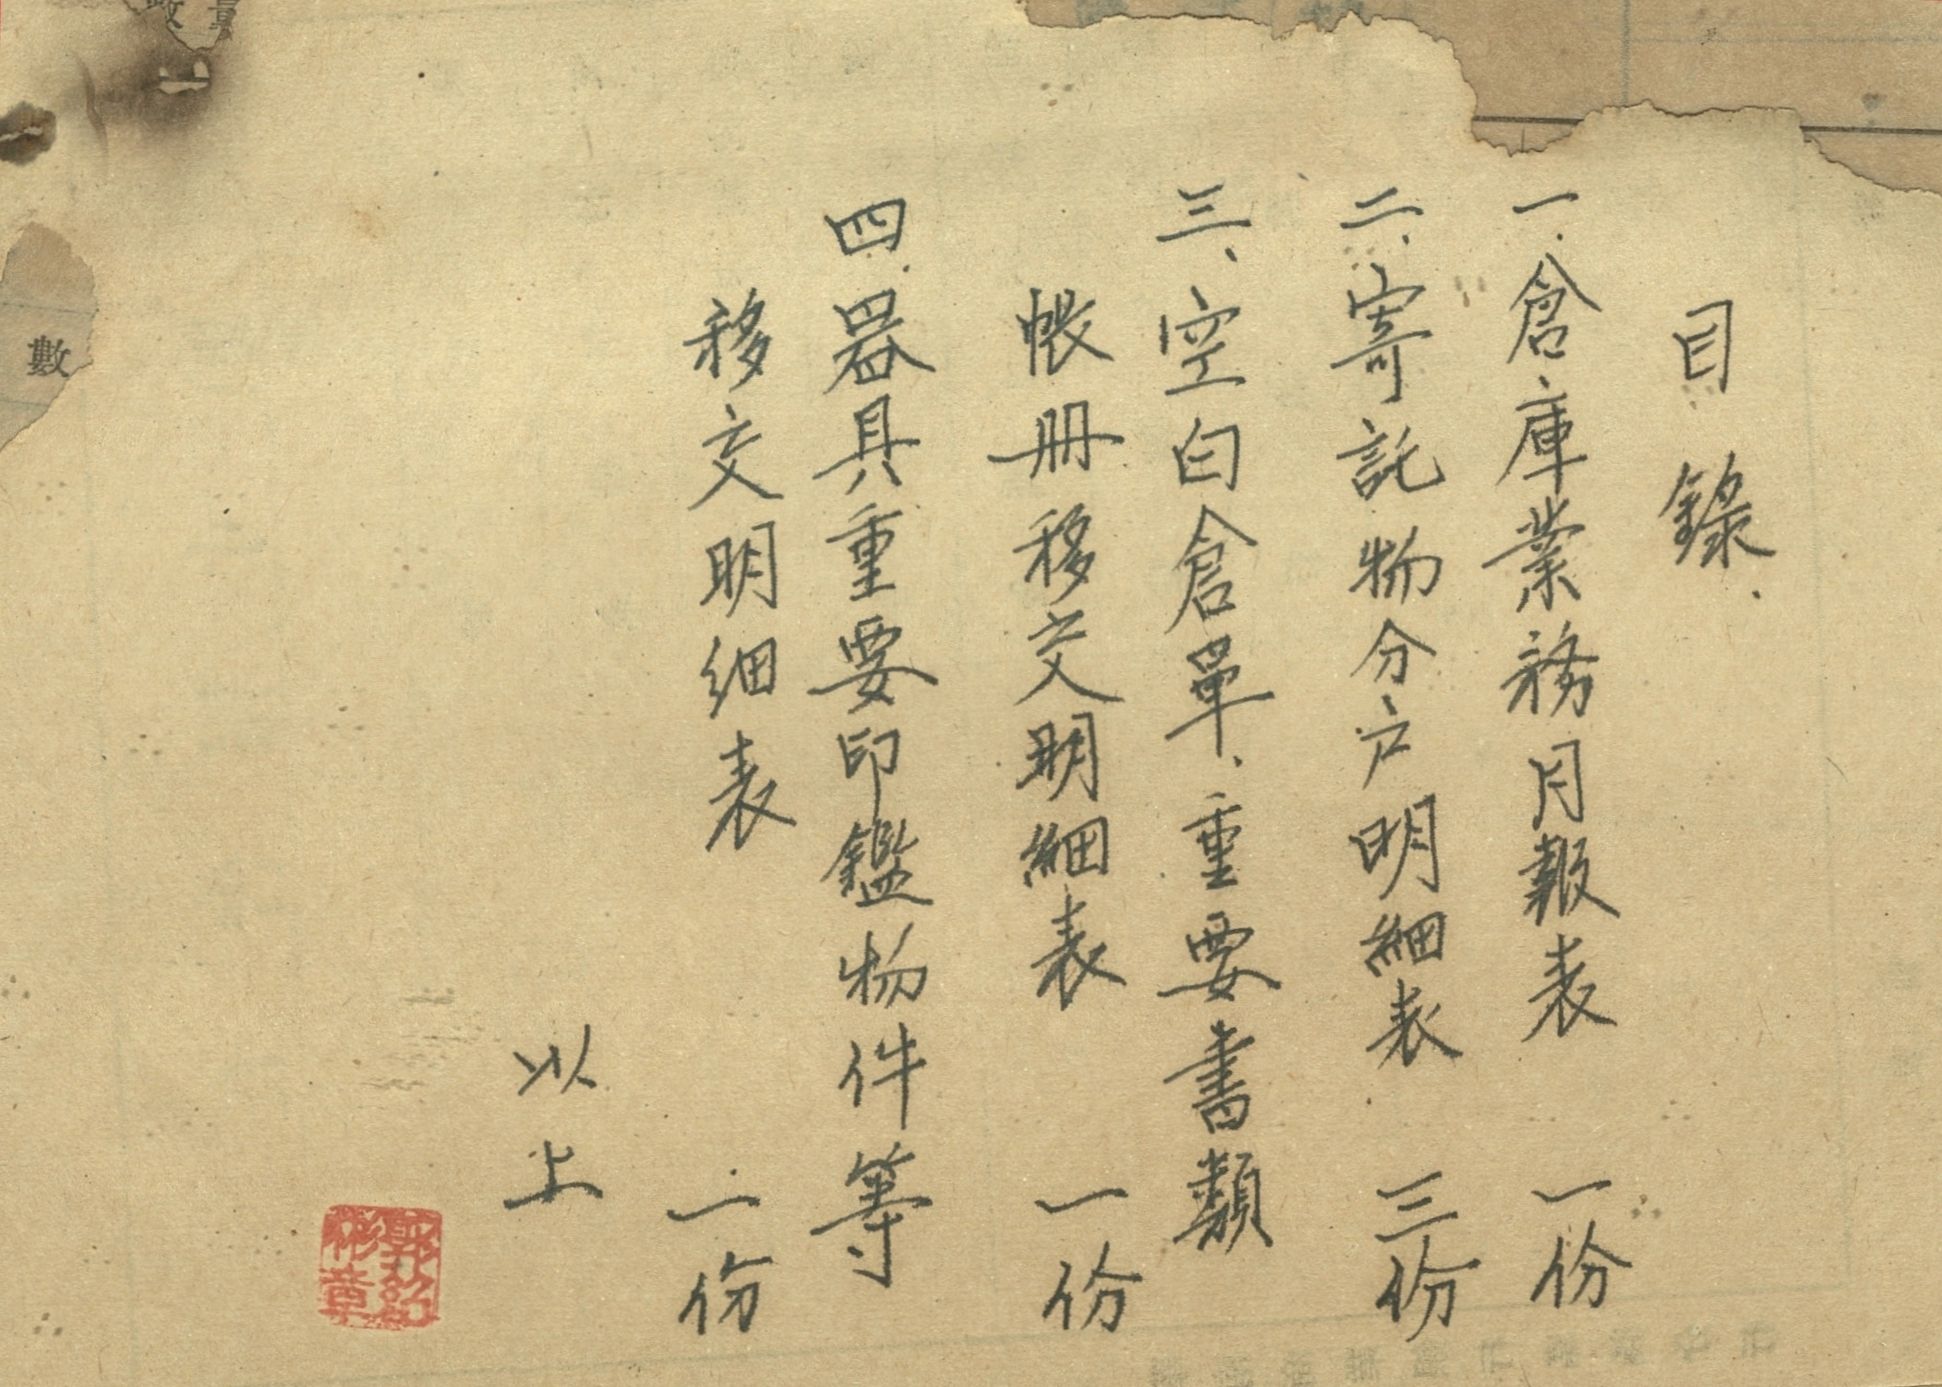 目錄.
一.倉庫業務月報表 一份
二.寄託物分户明細表 三份
三、空白倉單、重要書類
帳册移交明細表 一份
四.器具重要印鑑物件等
移交明細表 一份
以上
郭紹彬章
數